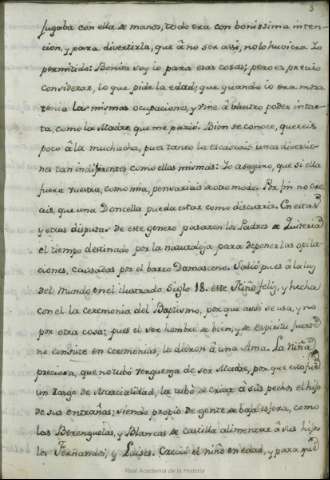 jugaba con ella de manos, todo era con bonissima inten-
cion, y para divertirla, que à no ser assi, no lo huviera Yo
permitido: Bonita soy io para esas cosas; pero es preciso
considerar, lo que pide la edad; que quando io era moza
tenia las mismas ocupaciones, y vine à buestro poder intac-
ta, como la Madre que me parió. Bien se conoce, quereis
poco à la muchacha, pues tanto la escaseais una diversio-
na tan indiferente como ellas mismas: Io aseguro, que si ella
fuera vuestra, como mia, pensariais de otro modo. Por fin no cre-
ais, que una Doncella pueda estar como discurris. En estas
y otras disputas de este genero pasaron los Padres de
el tiempo destinado por la naturaleza para deponer las opila-
ciones, causadas por el barro Damasceno. Salió pues à la luz
del Mundo en el ilustrado Siglo 18. este Niño feliz, y hecha
con el la ceremonia del Baptismo, por que assi se usa, y no
por otra cosa; pues el ser hombre de bien, y de espiritu fuerte
no consiste en ceremonias, le dieron à una Ama. La Niña
preciosa, que no tubo verguenza de ser Madre, por que esto fue
un rasgo de Marcialidad, la tubo de criar à sus pechos el hijo
de sus entrañas; siendo propio de gente de baja esfera, como
las Berenguelas, y Blancas de Castilla alimentar à sus hijos
los Fernandos, y Luises. Creció el niño en edad, y para que
Real Academia de la Historia